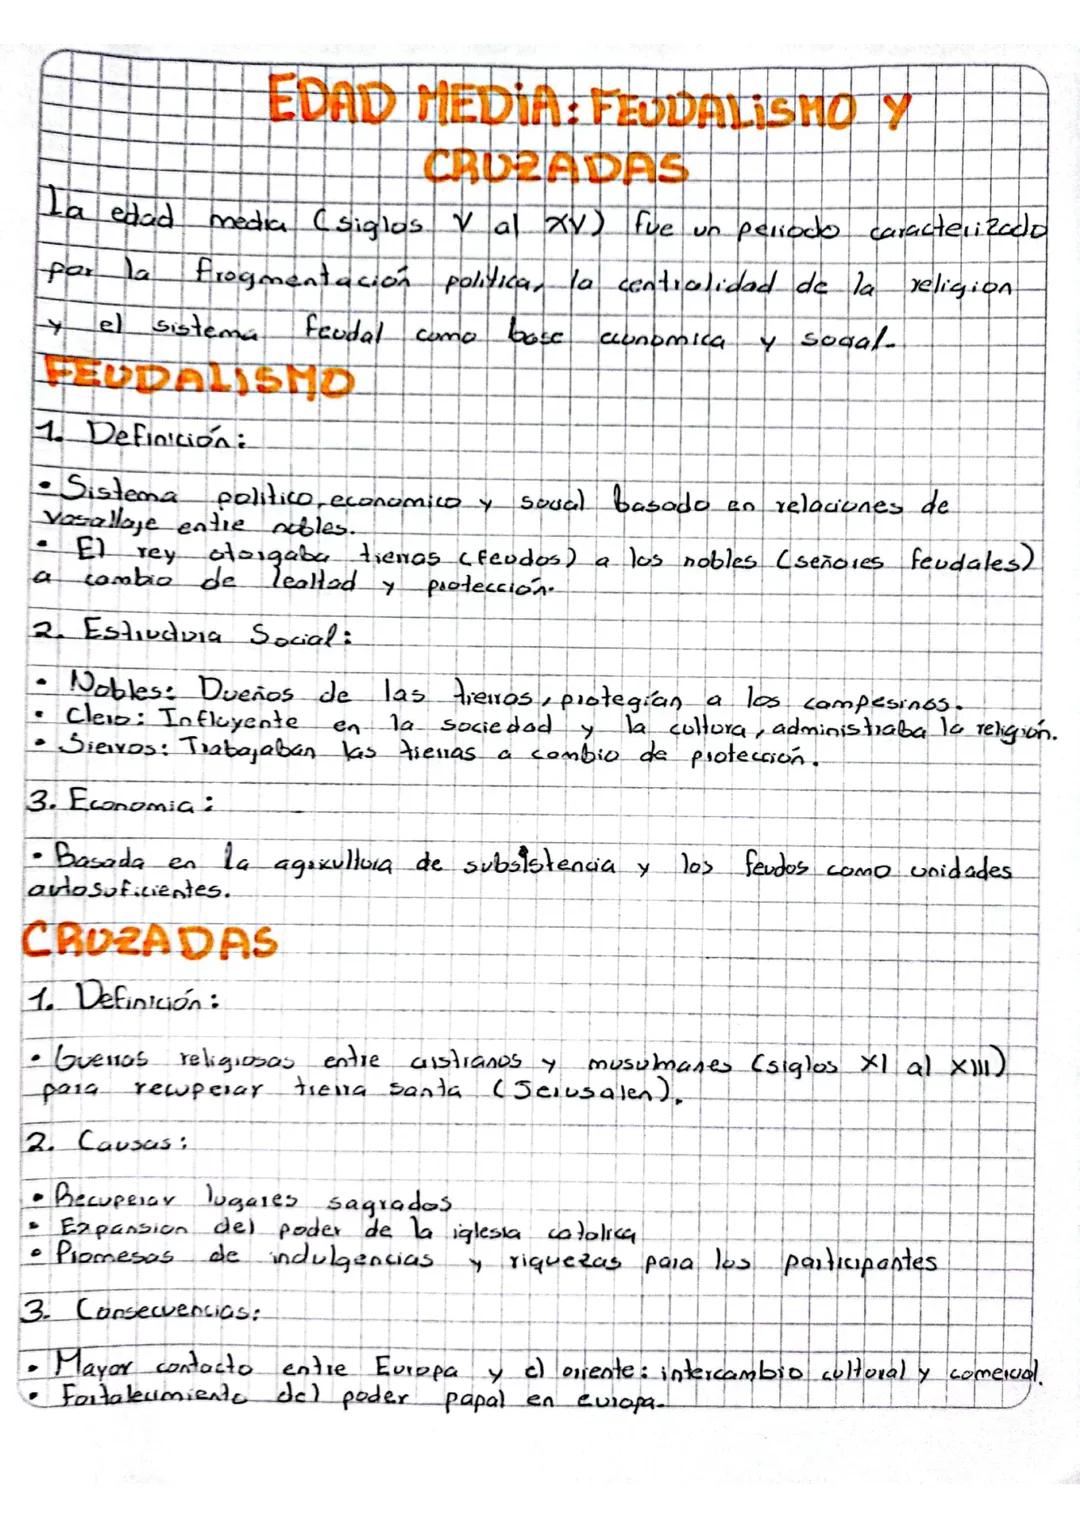 EDAD MEDIA: FEUDALISMO Y
CRUZADAS
La edad media (siglos V al XV) fue un periodo caracterizado
por la fragmentación politica, la centralidad de la religion
y el sistema feudal como base economica y social.
FEUDALISMO
1. Definición:
• Sistema politico, economico y social basado en relaciones de
vasallaje entre nobles.
• El rey otorgaba tierras (feudos) a los nobles (señores feudales)
a cambio de lealtad y protección.
2. Estructura Social:
• Nobles: Dueños de las tierras, protegían a los campesinos.
• Clero: Influyente en la sociedad y la cultura, administraba la religión.
• Siervos: Trabajaban las tierras a cambio de protección.
3. Economia:
• Basada en la agricultura de subsistencia y los feudos como unidades
autosuficientes.
CRUZADAS
1. Definición:
• Guerras religiosas entre cristianos y musulmanes (siglos XI al XIII)
para recuperar tierra santa (Jerusalen).
2. Causas:
• Recuperar lugares sagrados
• Expansion del poder de la iglesia catolica
• Promesas de indulgencias y riquezas para los participantes
3. Consecuencias:
• Mayor contacto entre Europa y el oriente: intercambio cultural y comercial.
• Fortalecimiento del poder papal en europa.